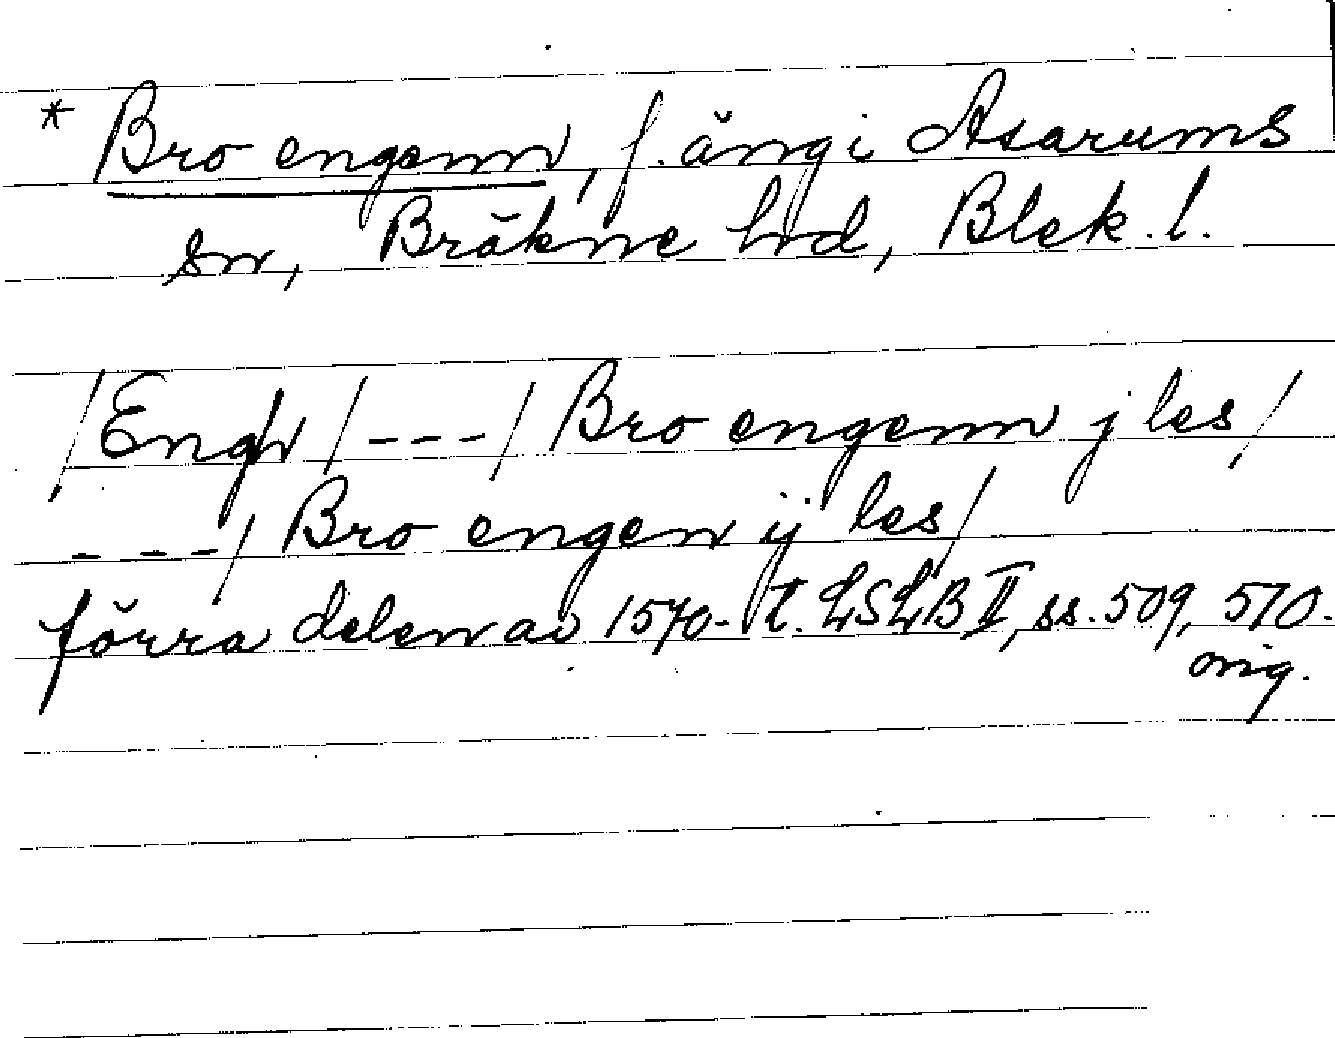 * Bro engenn, f. äng i Asarums
sn, Bräkne hd, Blek. l.
/Engh/---/Bro engenn j les/
---/Bro engen ij les/
förra delen av 1570-t. LSLB II, ss. 509, 510.
orig.